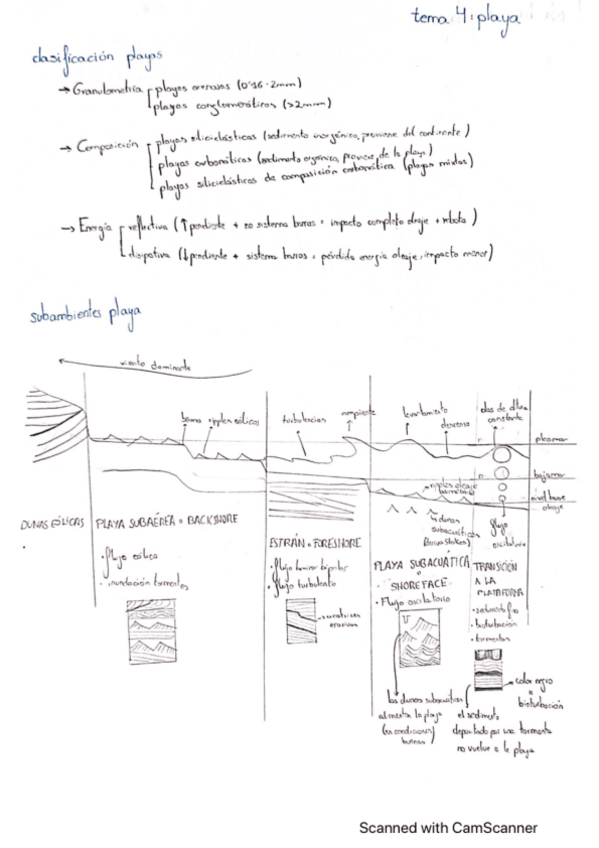 tema 4: playa
clasificación playas
→ Granulometría playas arenosas (0'16 - 2mm)
playas conglomeráticas (>2mm)
→ Composición playas siliciclásticas (sedimento inorgánico, proviene del continente)
playas carbonáticas (sedimento orgánico, proviene de la playa)
playas siliciclásticas de composición carbonática (playas mixtas)
→ Energía reflectiva (↑pendiente + no sistema barras = impacto completo oleaje + rebota)
disipativa (↓pendiente + sistema barras = pérdida energía oleaje, impacto menor)
subambientes playa
viento dominante
berma ripples eólicos turbulencias rompiente levantamiento descenso olas de altura constante
pleamar
bajamar
nivel base oleaje
ripples oleaje
↳ dunas subacuáticas
flujo oscilatorio
DUNAS EÓLICAS
PLAYA SUBAÉREA o BACKSHORE
· flujo eólico
· inundación tormentas
ESTRÁN o FORESHORE
· flujo laminar bipolar
· flujo turbulento
→ superficies erosión
PLAYA SUBACUÁTICA o SHOREFACE
· Flujo oscilatorio
las dunas subacuáticas
alimentan la playa
(en condiciones buenas)
TRANSICIÓN
A LA
PLATAFORMA
· sedimento fino
· bioturbación
· tormentas
→ color negro
o
bioturbación
el sedimento
depositado por una tormenta
no vuelve a la playa
Scanned with CamScanner